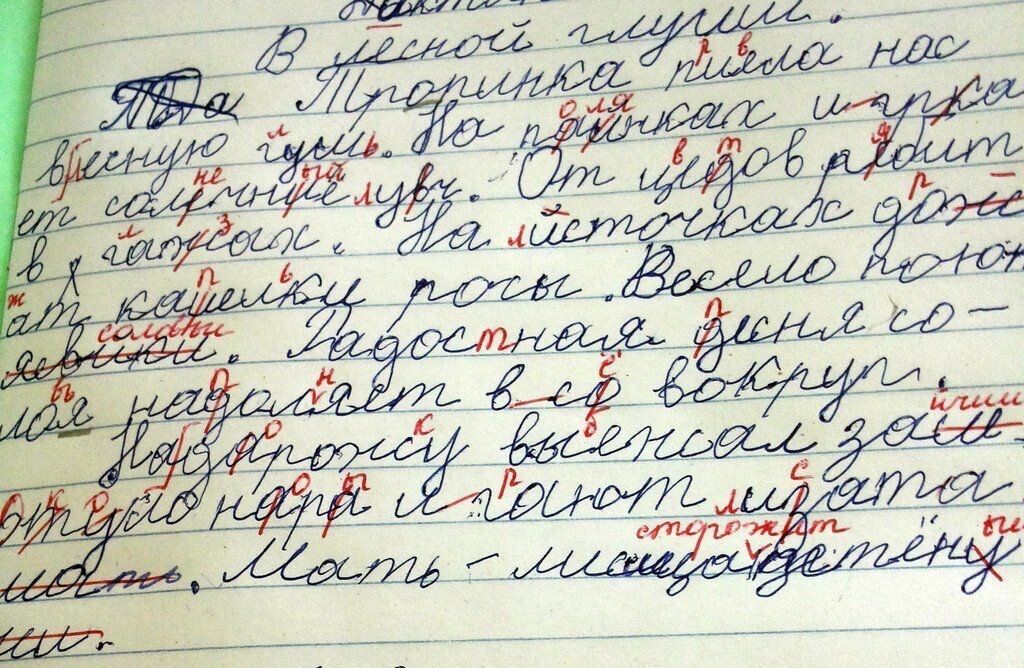 В лесной глуши.
Тропинка привела нас
в лесную глушь. На полянках игра
ет солнечный луч. От цветов рябит
в глазах. На листочках дро
жат капельки росы. Весело поют
соловьи. Радостная песня со-
ловья наполняет всё вокруг.
На дорожку выбежал зайчик
около норы играют лисята
Мать - лисица сторожит детёныш